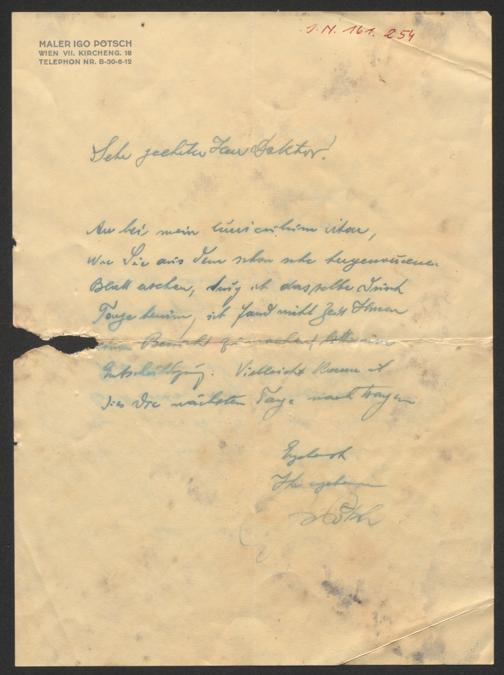 J.N. 161.254
MALER IGO PÖTSCH
WIEN VII. KIRCHENG. 18
TELEPHON NR. B-30-6-12
Sehr geehrter Herr Doktor!
An bei mein curriculum vitae,
Wie Sie aus dem schon sehr hergenommenen
Blatt ersehen, trug ich dasselbe durch
Tage herum, ich fand nicht Zeit Ihnen
einen Besuch zu machen, bitte um
Entschuldigung. Vielleicht kann ich
dies die nächsten Tage nachtragen
Ergebenst
Ihr ergebener
Pötsch